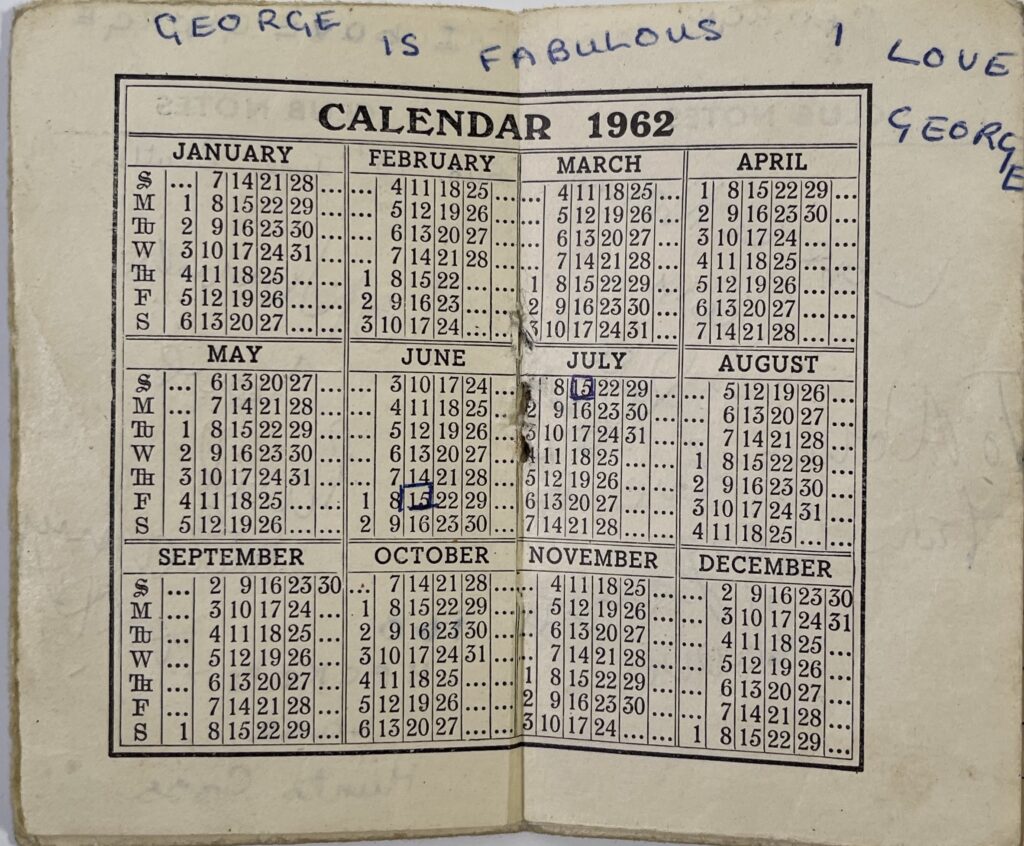 GEORGE IS FABULOUS I LOVE
GEORGE
CALENDAR 1962
JANUARY FEBRUARY MARCH APRIL
S ... 7 14 21 28 ... ... 4 11 18 25 ... ... 4 11 18 25 ... 1 8 15 22 29 ...
M 1 8 15 22 29 ... ... 5 12 19 26 ... ... 5 12 19 26 ... 2 9 16 23 30 ...
TU 2 9 16 23 30 ... ... 6 13 20 27 ... ... 6 13 20 27 ... 3 10 17 24 ... ...
W 3 10 17 24 31 ... ... 7 14 21 28 ... ... 7 14 21 28 ... 4 11 18 25 ... ...
TH 4 11 18 25 ... ... 1 8 15 22 ... ... 1 8 15 22 29 ... 5 12 19 26 ... ...
F 5 12 19 26 ... ... 2 9 16 23 ... ... 2 9 16 23 30 ... 6 13 20 27 ... ...
S 6 13 20 27 ... ... 3 10 17 24 ... ... 3 10 17 24 31 ... 7 14 21 28 ... ...
MAY JUNE JULY AUGUST
S ... 6 13 20 27 ... ... 3 10 17 24 ... 8 15 22 29 ... ... 5 12 19 26 ...
M ... 7 14 21 28 ... ... 4 11 18 25 ... 2 9 16 23 30 ... ... 6 13 20 27 ...
TU 1 8 15 22 29 ... ... 5 12 19 26 ... 3 10 17 24 31 ... ... 7 14 21 28 ...
W 2 9 16 23 30 ... ... 6 13 20 27 ... 4 11 18 25 ... ... 1 8 15 22 29 ...
TH 3 10 17 24 31 ... ... 7 14 21 28 ... 5 12 19 26 ... ... 2 9 16 23 30 ...
F 4 11 18 25 ... ... 1 8 15 22 29 ... 6 13 20 27 ... ... 3 10 17 24 31 ...
S 5 12 19 26 ... ... 2 9 16 23 30 ... 7 14 21 28 ... ... 4 11 18 25 ... ...
SEPTEMBER OCTOBER NOVEMBER DECEMBER
S ... 2 9 16 23 30 ... 7 14 21 28 ... ... 4 11 18 25 ... ... 2 9 16 23 30
M ... 3 10 17 24 ... 1 8 15 22 29 ... ... 5 12 19 26 ... ... 3 10 17 24 31
TU ... 4 11 18 25 ... 2 9 16 23 30 ... ... 6 13 20 27 ... ... 4 11 18 25 ...
W ... 5 12 19 26 ... 3 10 17 24 31 ... ... 7 14 21 28 ... ... 5 12 19 26 ...
TH ... 6 13 20 27 ... 4 11 18 25 ... ... 1 8 15 22 29 ... ... 6 13 20 27 ...
F ... 7 14 21 28 ... 5 12 19 26 ... ... 2 9 16 23 30 ... ... 7 14 21 28 ...
S 1 8 15 22 29 ... 6 13 20 27 ... ... 3 10 17 24 ... ... 1 8 15 22 29 ...